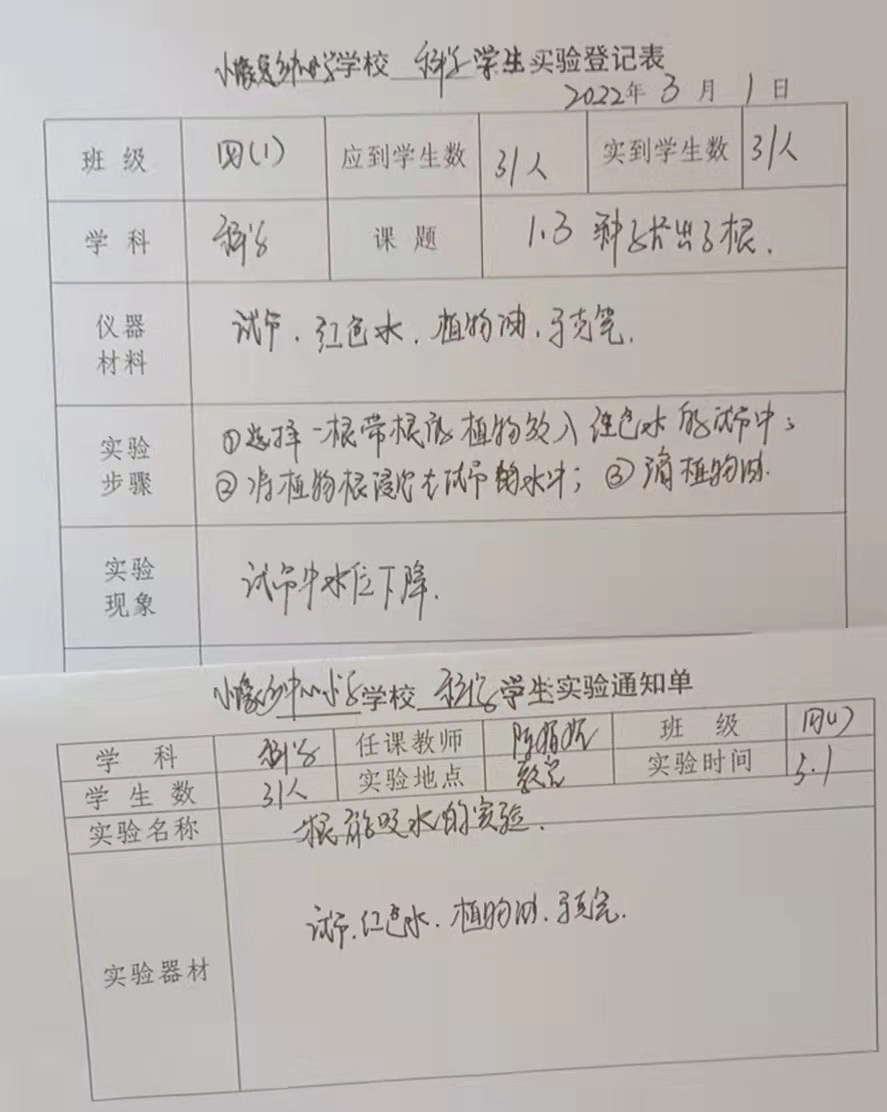 学校 科学 学生实验登记表
2022年 3 月 1 日
班 级 四(1) 应到学生数 31人 实到学生数 31人
学 科 科学 课 题 1.3 种子长出了根.
仪器材料 试管.红色水.植物油.马克笔.
实验步骤 ①选择一根带根的植物放入红色水的试管中;
②将植物根浸没在试管的水中; ③滴植物油.
实验现象 试管中水位下降.
中心小学学校 科学学生实验通知单
学 科 科学 任课教师 陈 班 级 四(1)
学 生 数 31人 实验地点 教室 实验时间 3.1
实验名称 根能吸水的实验.
实验器材 试管.红色水.植物油.马克笔.